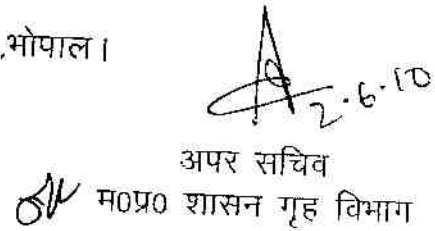 ,भोपाल।
2.6.10
अपर सचिव
म0प्र0 शासन गृह विभाग